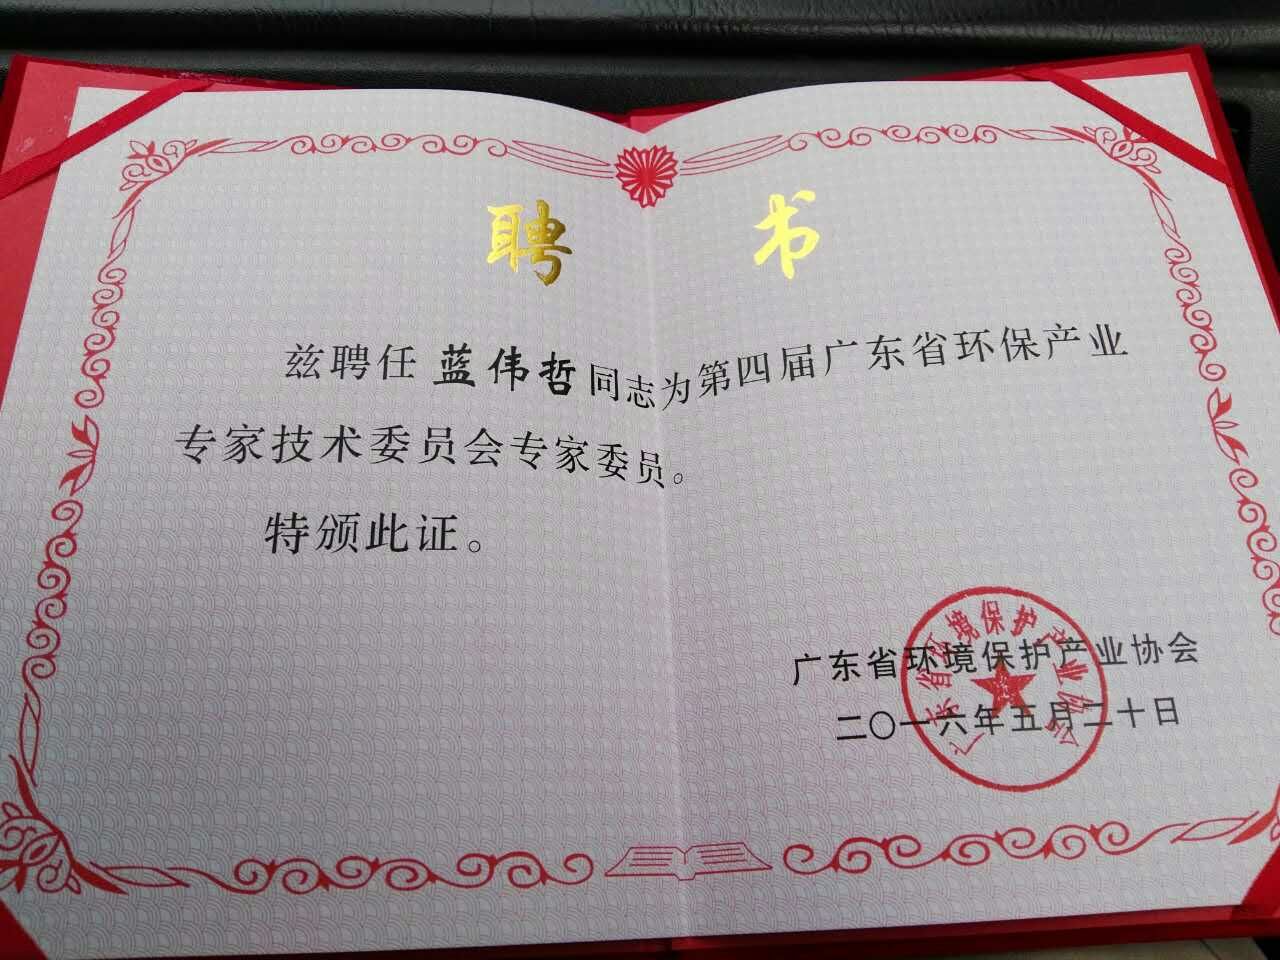 聘 书
兹聘任 蓝伟哲 同志为第四届广东省环保产业
专家技术委员会专家委员。
特颁此证。
广东省环境保护产业协会
二〇一六年五月二十日
广东省环境保护产业协会